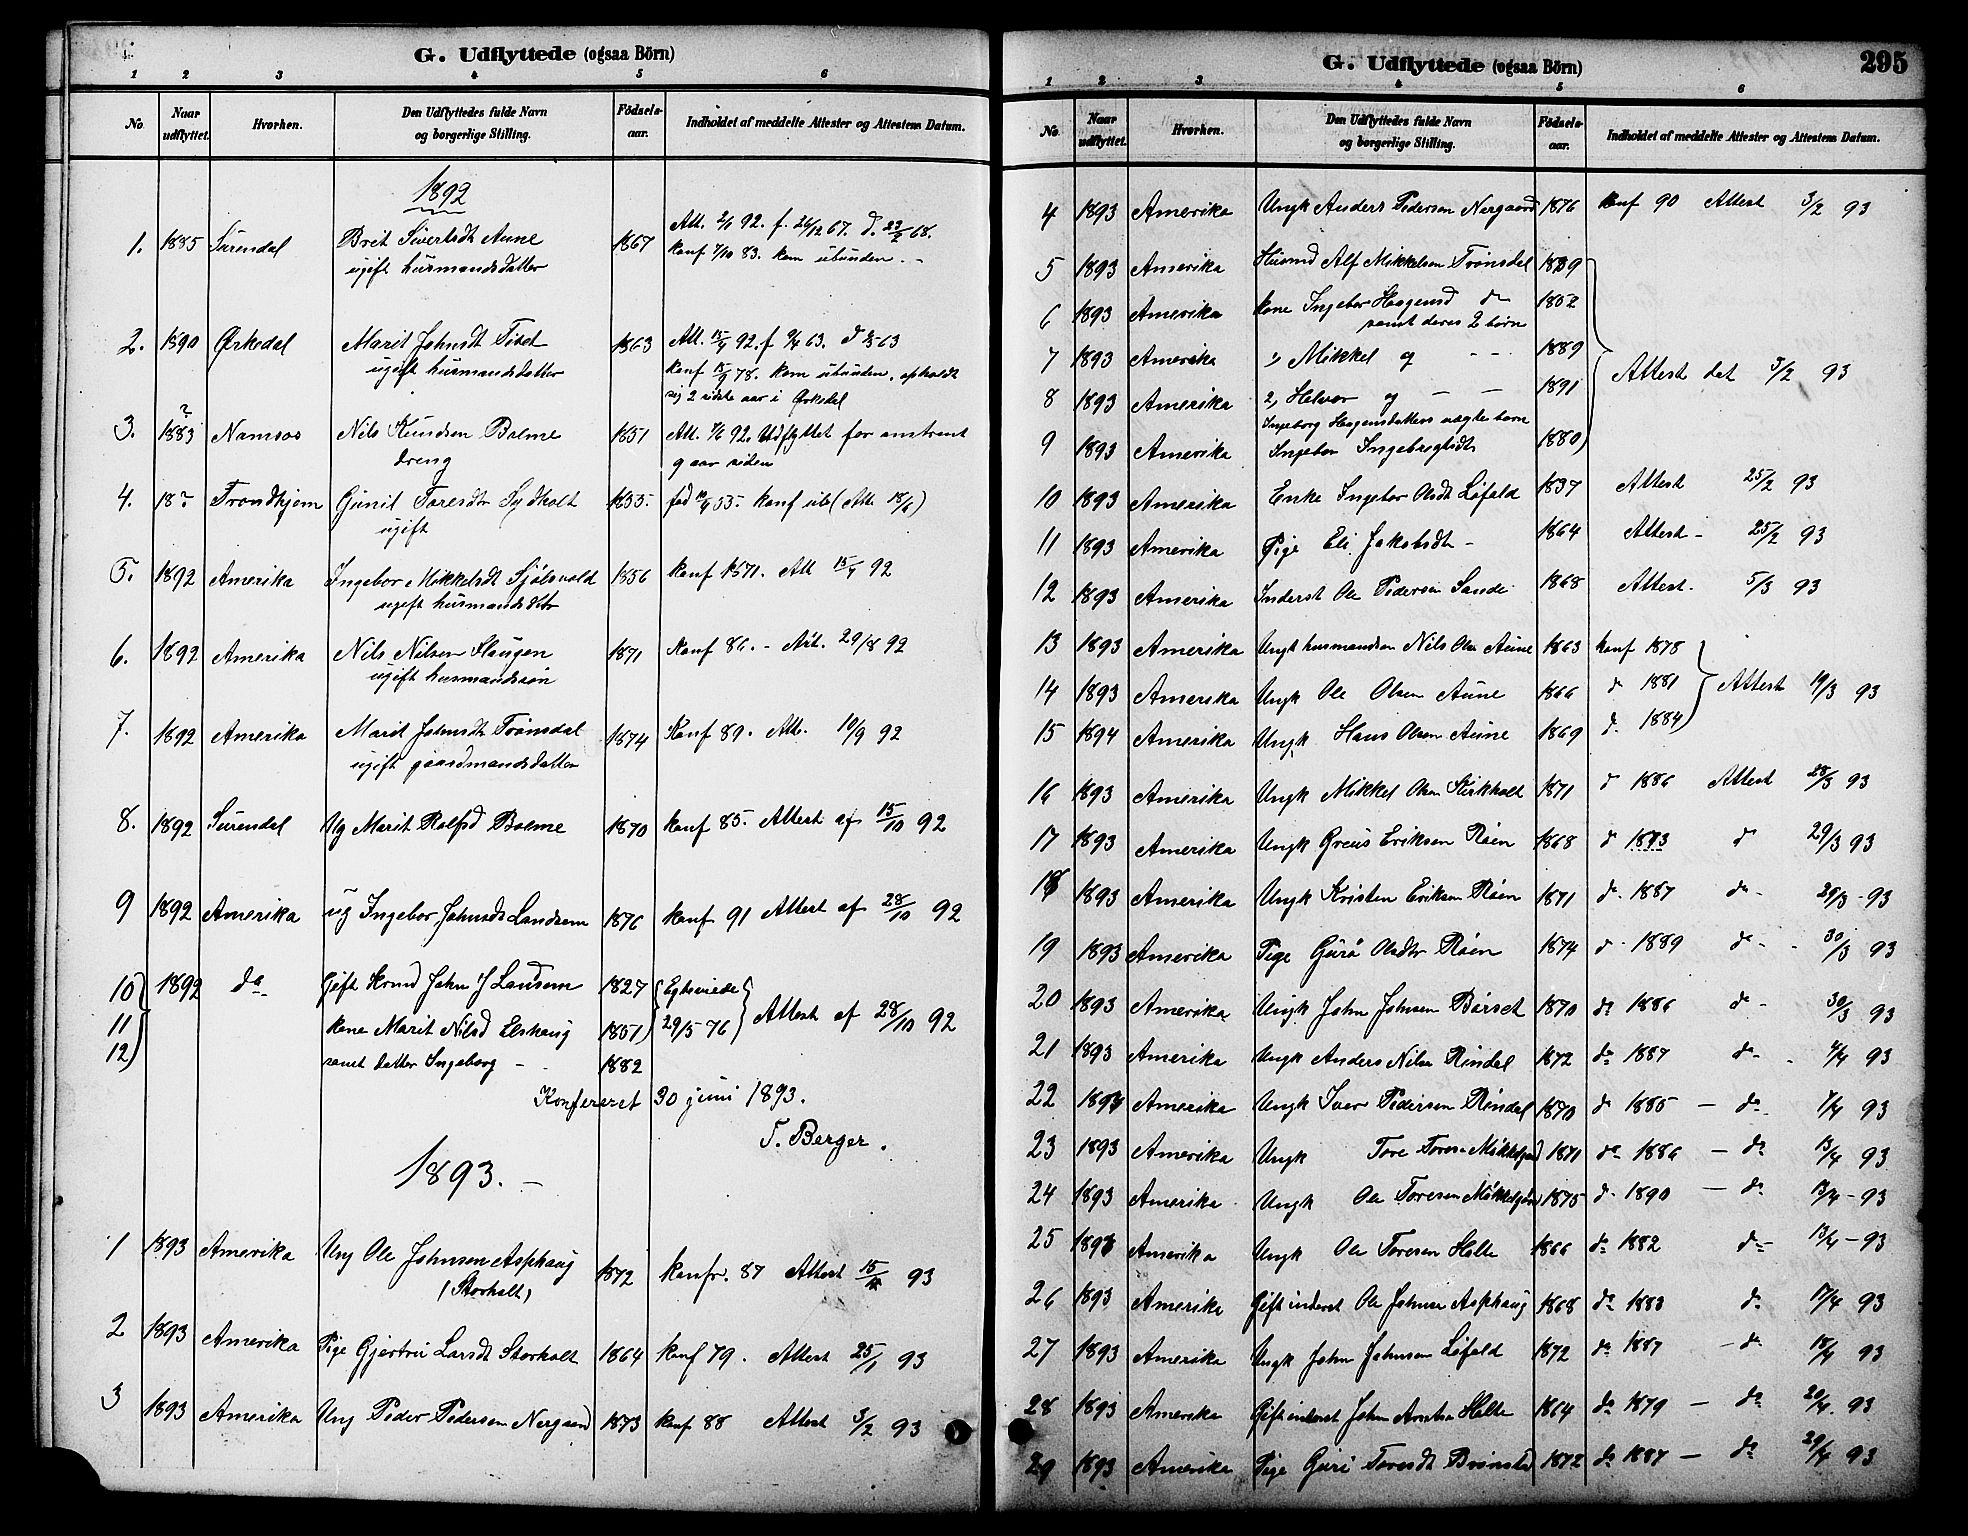 G. Udflyttede (ogsaa Börn)
1 2 3 4 5 6
No. Naar udflyttet. Hvorhen. Den Udflyttedes fulde Navn og borgerlige Stilling. Födsels-aar. Indholdet af meddelte Attester og Attestens Datum.
1892
1. 1885 Surendal Brit Sivertsdt Aune 1867 Att. 2/1 92. f. 26/12 67. d. 22/2 68.
ugift husmandsdatter konf 7/10 83. kom ubunden. -
2. 1890 Ørkedal Marit Johnsdt Tiset 1863 Att. 15/4 92. f 63. d 63
ugift husmandsdatter konf 15/9 78. kom ubunden, opholdt
sig 2 sidste aar i Ørkedal
3. 1883 ? Namsos Nils Knudsen Bolme 1851 Att. 7/6 92. Udflyttet for omtrent
dreng 9 aar siden
4. 18? Trondhjem Gunil Toresdtr Sydholt 1855. fød 55. konf ub (Att. 18/6)
ugift
5. 1892 Amerika Ingebor Mikkelsdt Sjølsvold 1856 konf 1871. Att 15/4 92
ugift husmandsdtr
6. 1892 Amerika Nils Nilsen Haugen 1871 Konf 86. - Att. 29/8 92
ugift husmandssøn
7. 1892 Amerika Marit Johnsdt Trønsdal 1874 Konf 89. Att. 10/9 92
ugift gaardmandsdatter
8. 1892 Surendal Ug Marit Rolfsd Bolme 1870 konf 85. Attest af 15/10 92
9 1892 Amerika ug Ingebor Johnsdt Landsem 1876 konf 91 Attest af 28/10 92
10 1892 do Gift Kaard John J Landsem 1827 Egteviede
11 kone Marit Nilsd Elshaug 1851 29/5 76 Attest af 28/10 92
12 samt datter Ingeborg - 1882
Konfereret 30 juni 1893.
T. Berger.
1893. -
1 1893 Amerika Ung Ole Johnsen Asphaug 1872 konfr. 87 Attest 15/ 93
(Storholt)
2 1893 Amerika Pige Gjertru Larsdt Storholt 1864 konf 79. Attest 25/1 93
3 1893 Amerika Ung Peder Pedersen Nergaard 1873 konf 88 Attest 3/2 93
G. Udflyttede (ogsaa Börn) 295
1 2 3 4 5 6
No. Naar udflyttet. Hvorhen. Den Udflyttedes fulde Navn og borgerlige Stilling. Födsels-aar. Indholdet af meddelte Attester og Attestens Datum.
4 1893 Amerika Ungk Anders Pedersen Nergaard 1876 konf 90 Attest 3/2 93
5 1893 Amerika Husmd Alf Mikkelsen Trønsdal 1859
6 1893 Amerika kone Ingebor Haagensd do 1852
samt deres 2 børn
7 1893 Amerika 1, Mikkel og - - - 1889 Attest dat 3/2 93
8 1893 Amerika 2, Halvor og - - 1891
Ingeborg Haagensdatters uægte barn
9 1893 Amerika Ingebor Ingebrigtsdt 1880
10 1893 Amerika Enke Ingebor Olsdt Løfald 1837 Attest 25/2 93
11 1893 Amerika Pige Eli Jakobsdt - 1864 Attest - 25/2 93
12 1893 Amerika Inderst Ole Pedersen Sande 1868 Attest - 5/3 93
13 1893 Amerika Ungk husmandssøn Nils Olsen Aune 1863 konf 1878
14 1893 Amerika Ungk Ole Olsen Aune 1866 do 1881 Attest 19/3 93
15 1894 Amerika Ungk Hans Olsen Aune 1869 do 1884
16 1893 Amerika Ungk Mikkel Olsen Kirkholt 1871 do 1886 Attest 28/3 93
17 1893 Amerika Ungk Greus Eriksen Røen 1868 do 1883 do 29/3 93
18 1893 Amerika Ungk Kristen Eriksen Røen 1871 do 1887 do 29/3 - 93
19 1893 Amerika Pige Gurø Olsdtr Røen 1874 do 1889 do - 30/3 93
20 1893 Amerika Ungk John Johnsen Børset 1870 do 1886 do - 30/3 93
21 1893 Amerika Ungk Anders Nilsen Rindal 1872 do 1887 do - 4/4 93
22 1893 Amerika Ungk Iver Pedersen Rindal 1870 do 1885 - do 7/4 93
23 1893 Amerika Ungk Tore Toresen Mikkelgaard 1871 do 1886 - do 13/4 93
24 1893 Amerika Ungk Ole Toresen Mikkelgaard 1875 do 1890 - do 13/4 - 93
25 1893 Amerika Ungk Ole Toresen Helle 1866 do 1882 do 13/4 - 93
26 1893 Amerika Gift inderst Ole Johnsen Asphaug 1868 do 1883 do 17/4 93
27 1893 Amerika Ungk John Johnsen Løfald 1872 do 1887 - do 18/4 93
28 1893 Amerika Gift inderst John Arntsen Helle 1864 do 1879 - do 20/4 93
29 1893 Amerika Pige Guri Toresdt Brønstad 1872 do 1887 - do 29/4 93